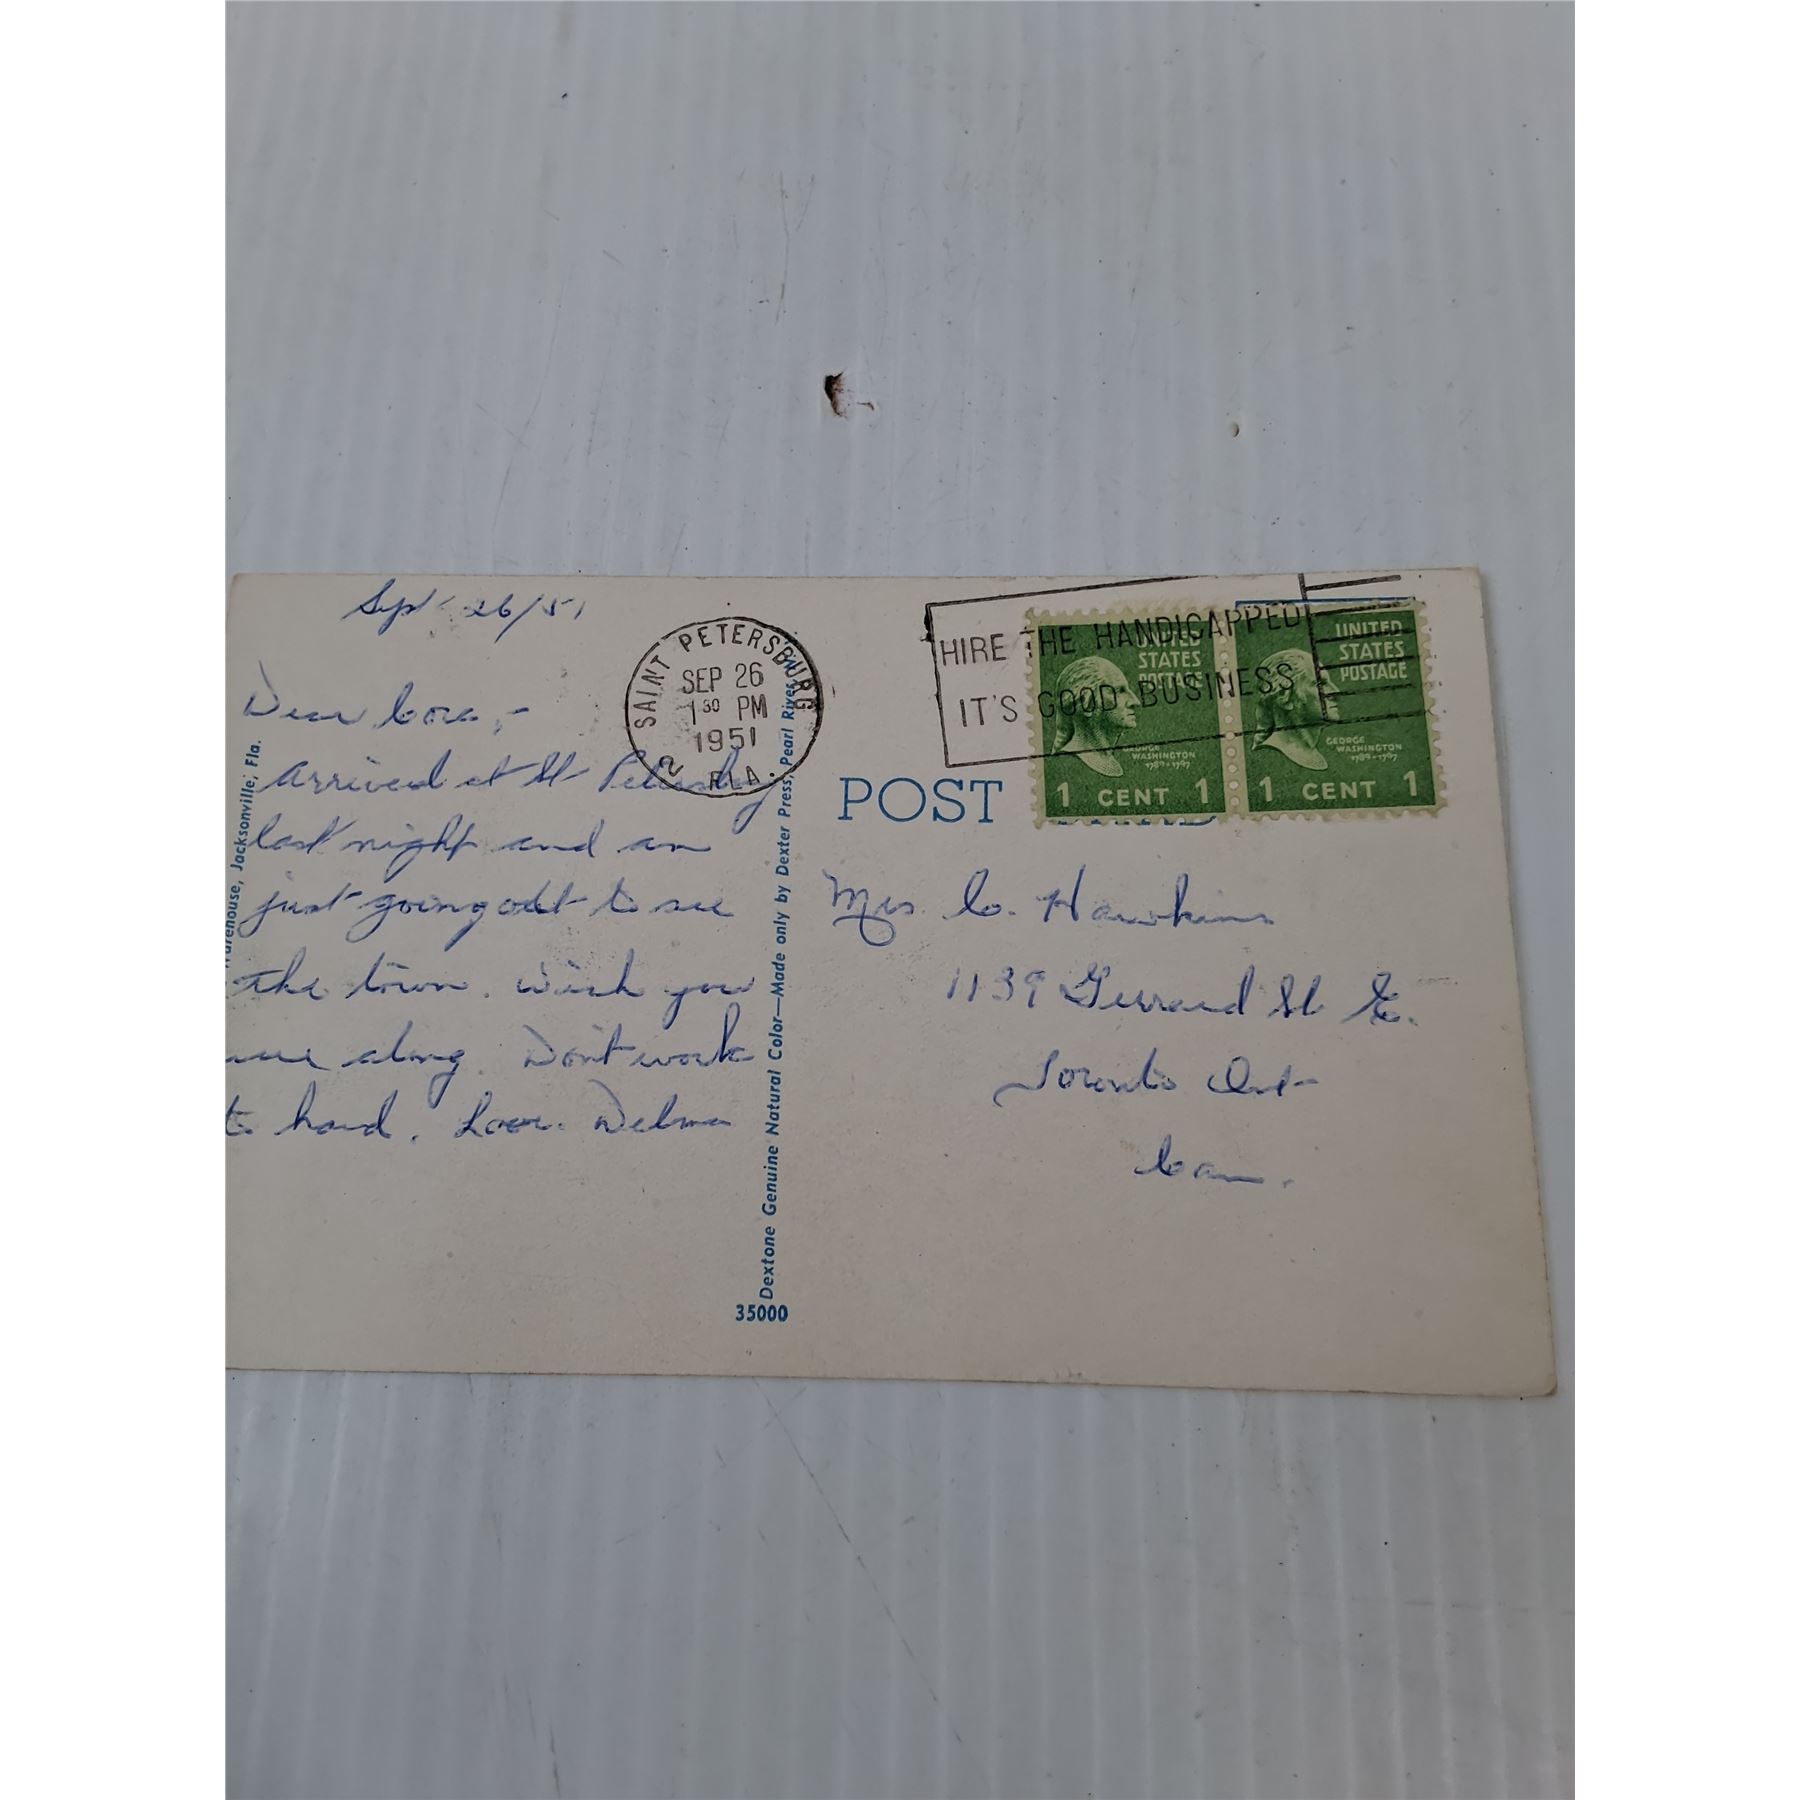 Sept 26/51
Dear Cora,-
Arrived at St Petersburg
last night and am
just going out to see
the town. Wish you
were along. Don't work
to hard. Love. Delma
SAINT PETERSBURG
SEP 26
1 30 PM
1951
2 FLA.
HIRE THE HANDICAPPED
IT'S GOOD BUSINESS
UNITED
STATES
POSTAGE
GEORGE
WASHINGTON
1789-1797
1 CENT 1
UNITED
STATES
POSTAGE
GEORGE
WASHINGTON
1789-1797
1 CENT 1
POST CARD
Mrs C. Hawkins
1139 Gerrard St E.
Toronto Ont
Can.
Warehouse, Jacksonville, Fla.
Dextone Genuine Natural Color—Made only by Dexter Press, Pearl River, N
35000